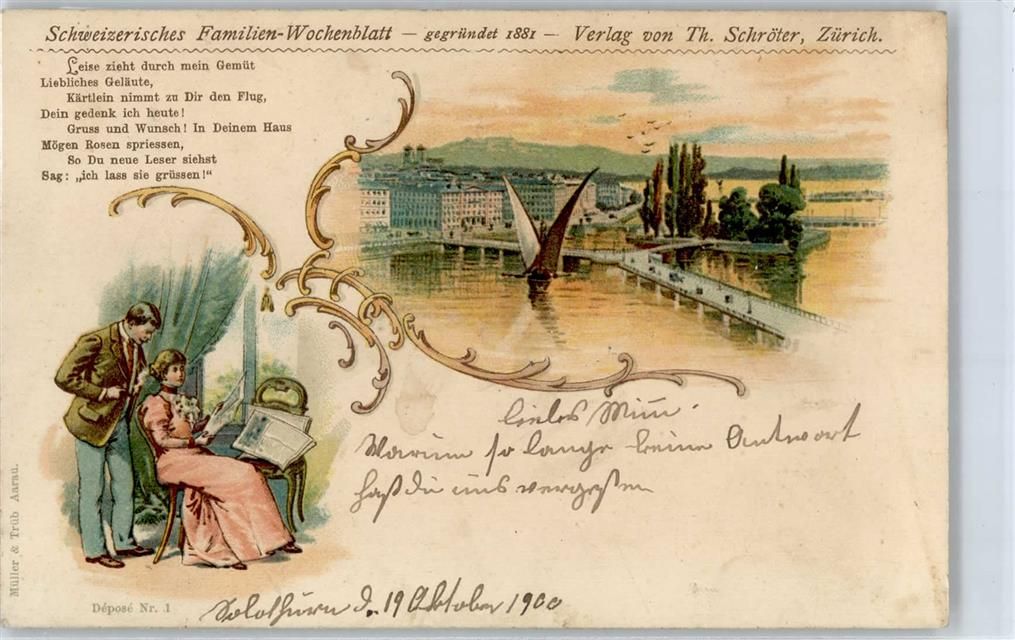 Schweizerisches Familien-Wochenblatt — gegründet 1881 — Verlag von Th. Schröter, Zürich.
Leise zieht durch mein Gemüt
Liebliches Geläute,
Kärtlein nimmt zu Dir den Flug,
Dein gedenk ich heute!
Gruss und Wunsch! In Deinem Haus
Mögen Rosen spriessen,
So Du neue Leser siehst
Sag: „ich lass sie grüssen!“
liebes Mimi.
Warum so lange keine Antwort
hast du uns vergessen
Solothurn d. 19 Oktober 1900
Müller & Trüb Aarau.
Déposé Nr. 1